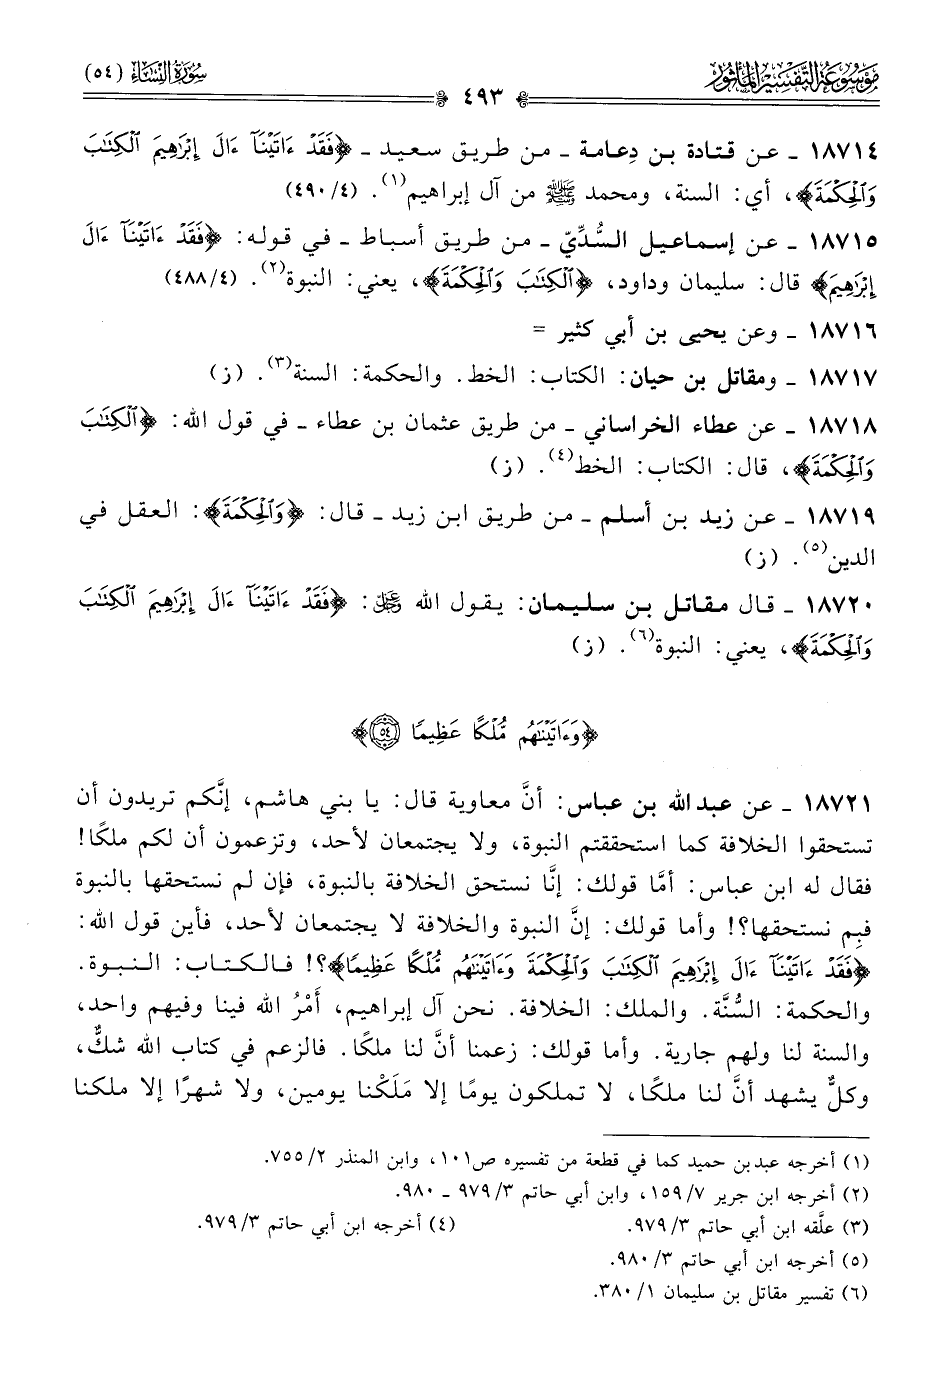 موسوعة التفسير المأثور
سورة النساء (٥٤)
٤٩٣
١٨٧١٤ ـ عن قتادة بن دِعامة ـ من طريق سعيد ـ ﴿فَقَدْ ءَاتَيْنَآ ءَالَ إِبْرَٰهِيمَ ٱلْكِتَٰبَ
وَٱلْحِكْمَةَ﴾، أي: السنة، ومحمد ﷺ من آل إبراهيم(١). (٤٩٠/٤)
١٨٧١٥ ـ عن إسماعيل السُّدِّيّ ـ من طريق أسباط ـ في قوله: ﴿فَقَدْ ءَاتَيْنَآ ءَالَ
إِبْرَٰهِيمَ﴾ قال: سليمان وداود، ﴿ٱلْكِتَٰبَ وَٱلْحِكْمَةَ﴾، يعني: النبوة(٢). (٤٨٨/٤)
١٨٧١٦ ـ وعن يحيى بن أبي كثير =
١٨٧١٧ ـ ومقاتل بن حيان: الكتاب: الخط. والحكمة: السنة(٣). (ز)
١٨٧١٨ ـ عن عطاء الخراساني ـ من طريق عثمان بن عطاء ـ في قول الله: ﴿ٱلْكِتَٰبَ
وَٱلْحِكْمَةَ﴾، قال: الكتاب: الخط(٤). (ز)
١٨٧١٩ ـ عن زيد بن أسلم ـ من طريق ابن زيد ـ قال: ﴿وَٱلْحِكْمَةَ﴾: العقل في
الدين(٥). (ز)
١٨٧٢٠ ـ قال مقاتل بن سليمان: يقول الله ﷿: ﴿فَقَدْ ءَاتَيْنَآ ءَالَ إِبْرَٰهِيمَ ٱلْكِتَٰبَ
وَٱلْحِكْمَةَ﴾، يعني: النبوة(٦). (ز)
﴿وَءَاتَيْنَٰهُم مُّلْكًا عَظِيمًا ٥٤﴾
١٨٧٢١ ـ عن عبد الله بن عباس: أنَّ معاوية قال: يا بني هاشم، إنَّكم تريدون أن
تستحقوا الخلافة كما استحققتم النبوة، ولا يجتمعان لأحد، وتزعمون أن لكم ملكًا!
فقال له ابن عباس: أمَّا قولك: إنَّا نستحق الخلافة بالنبوة، فإن لم نستحقها بالنبوة
فبِم نستحقها؟! وأما قولك: إنَّ النبوة والخلافة لا يجتمعان لأحد، فأين قول الله:
﴿فَقَدْ ءَاتَيْنَآ ءَالَ إِبْرَٰهِيمَ ٱلْكِتَٰبَ وَٱلْحِكْمَةَ وَءَاتَيْنَٰهُم مُّلْكًا عَظِيمًا﴾؟! فالكتاب: النبوة.
والحكمة: السُّنَّة. والملك: الخلافة. نحن آل إبراهيم، أَمْرُ الله فينا وفيهم واحد،
والسنة لنا ولهم جارية. وأما قولك: زعمنا أنَّ لنا ملكًا. فالزعم في كتاب الله شكٌّ،
وكلٌّ يشهد أنَّ لنا ملكًا، لا تملكون يومًا إلا مَلَكْنا يومين، ولا شهرًا إلا ملكنا
(١) أخرجه عبد بن حميد كما في قطعة من تفسيره ص١٠١، وابن المنذر ٧٥٥/٢.
(٢) أخرجه ابن جرير ١٥٩/٧، وابن أبي حاتم ٩٧٩/٣ ـ ٩٨٠.
(٣) علَّقه ابن أبي حاتم ٩٧٩/٣. (٤) أخرجه ابن أبي حاتم ٩٧٩/٣.
(٥) أخرجه ابن أبي حاتم ٩٨٠/٣.
(٦) تفسير مقاتل بن سليمان ٣٨٠/١.